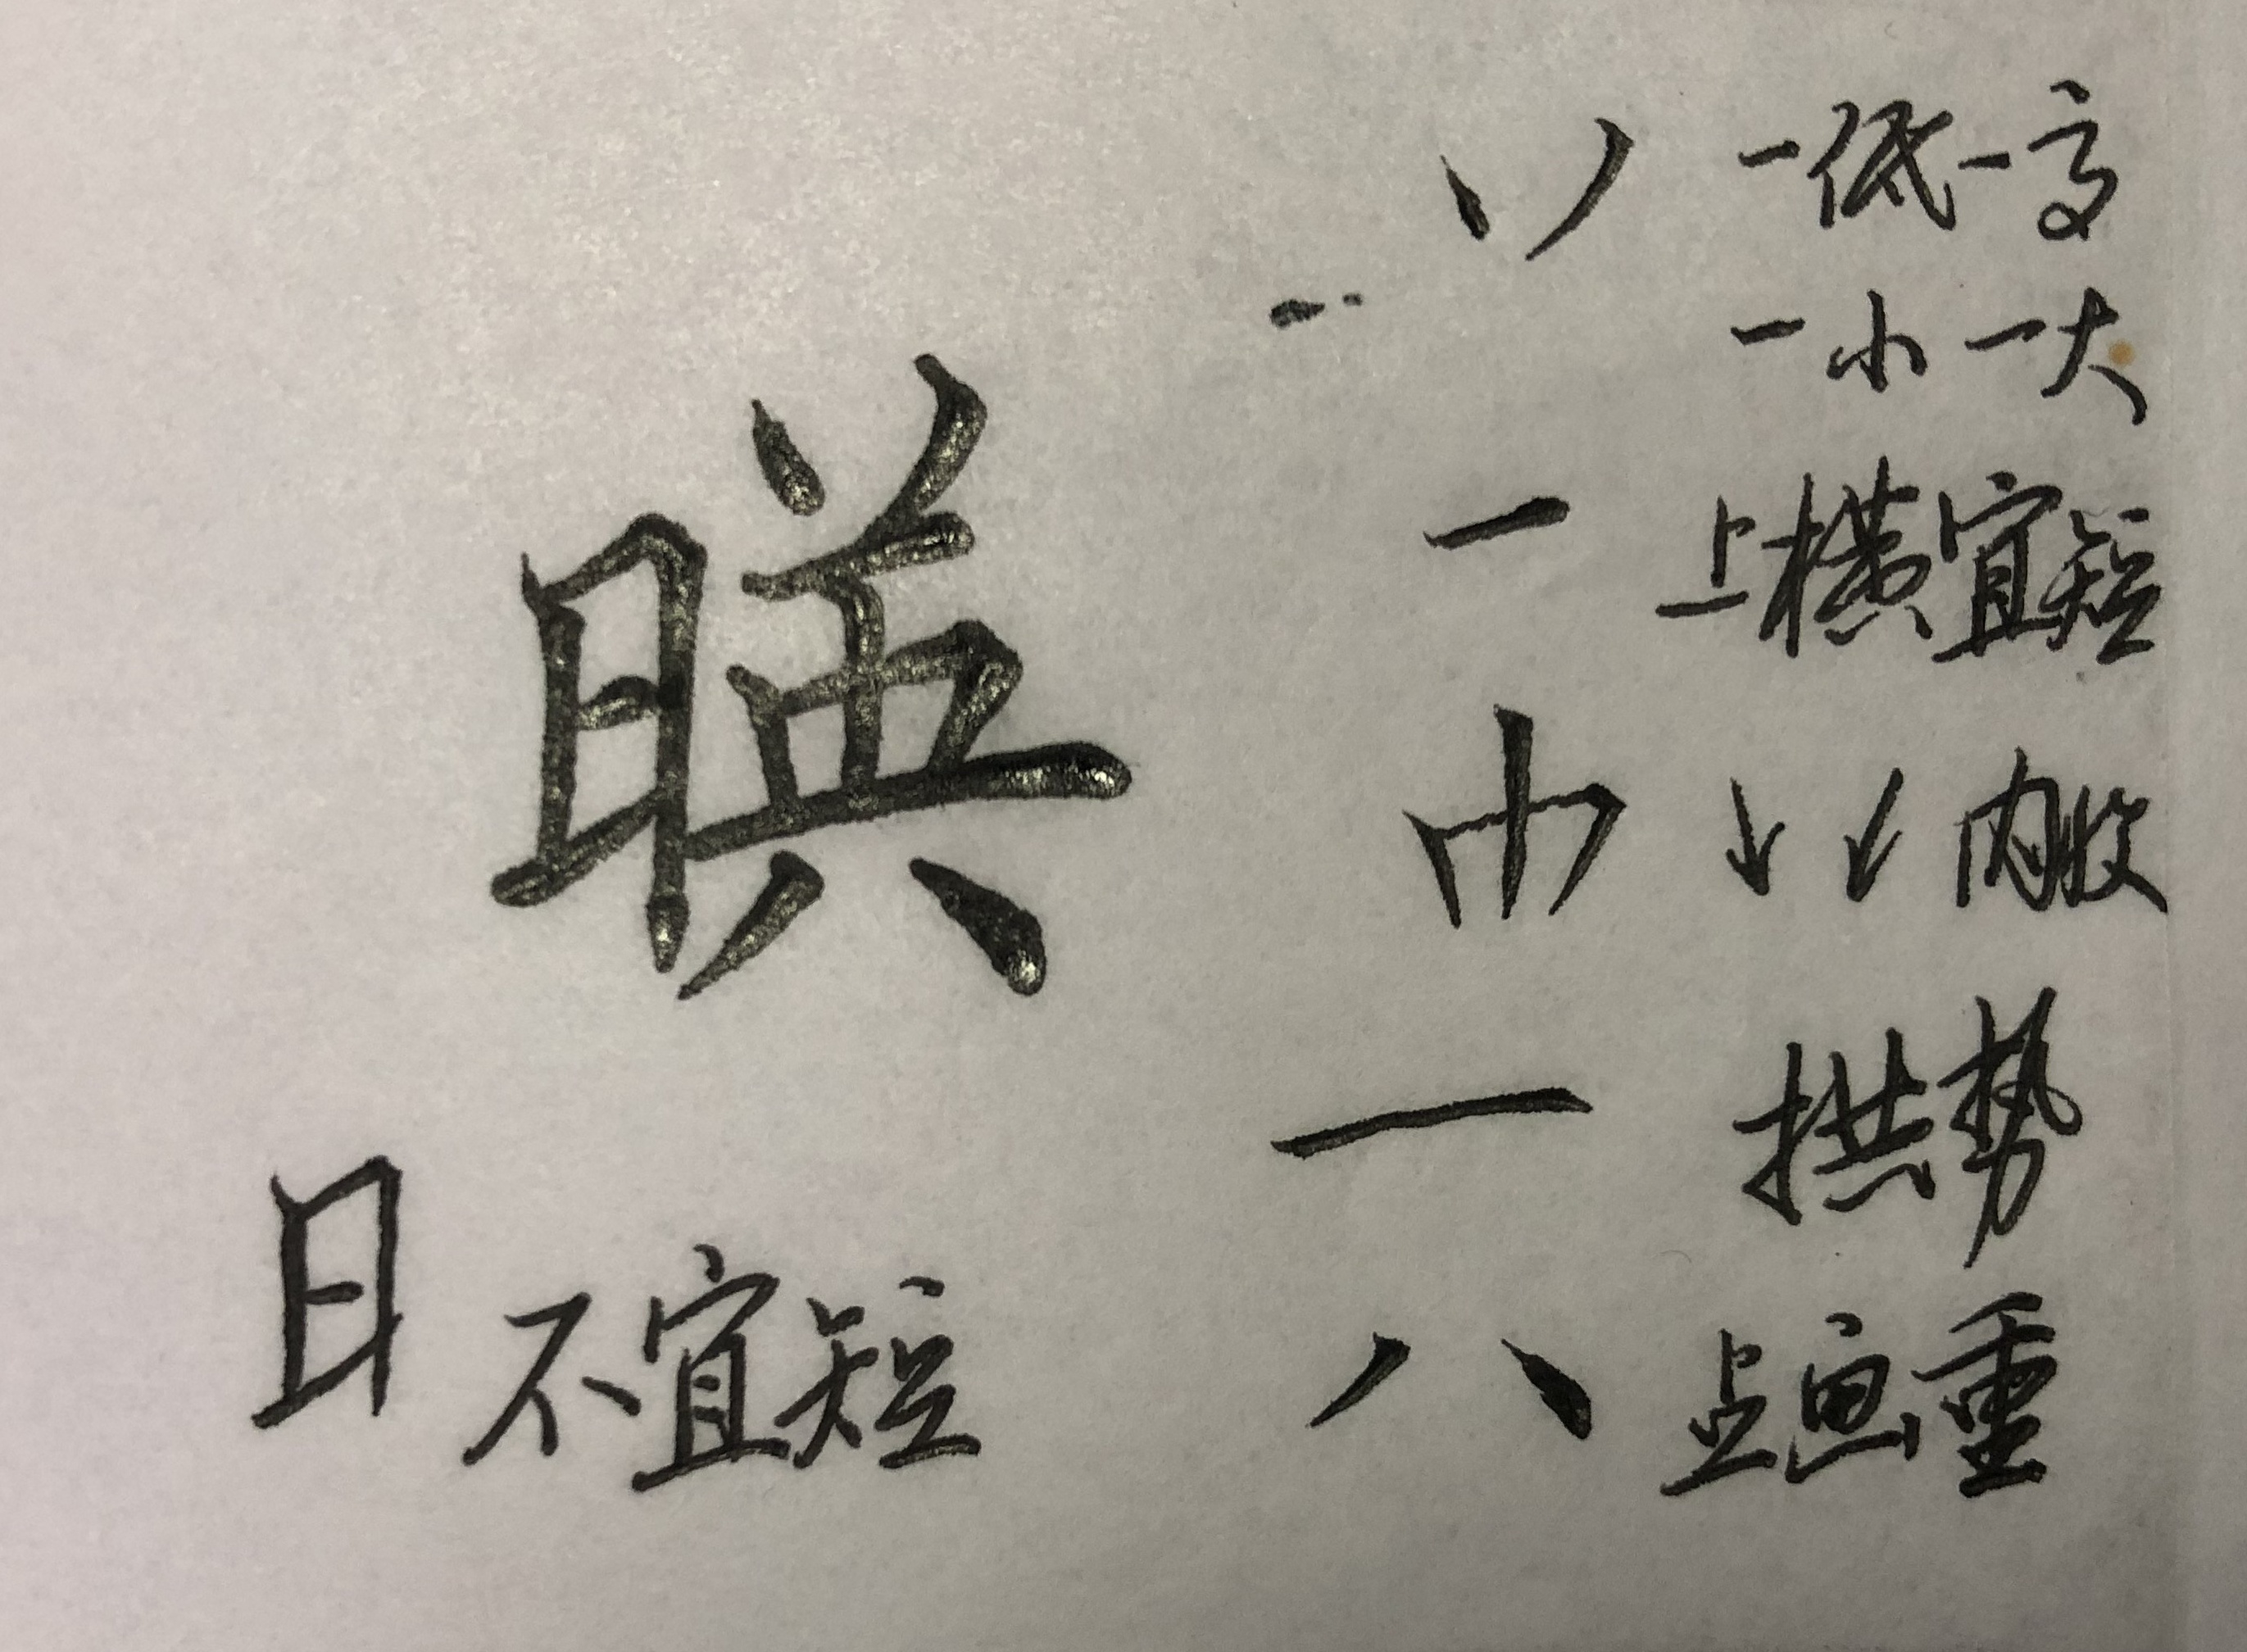 丷 一低一高
一小一大
暎
一 上横宜短
巾 ↓ ↙ 内收
一 拱势
日 不宜短
八 点画重